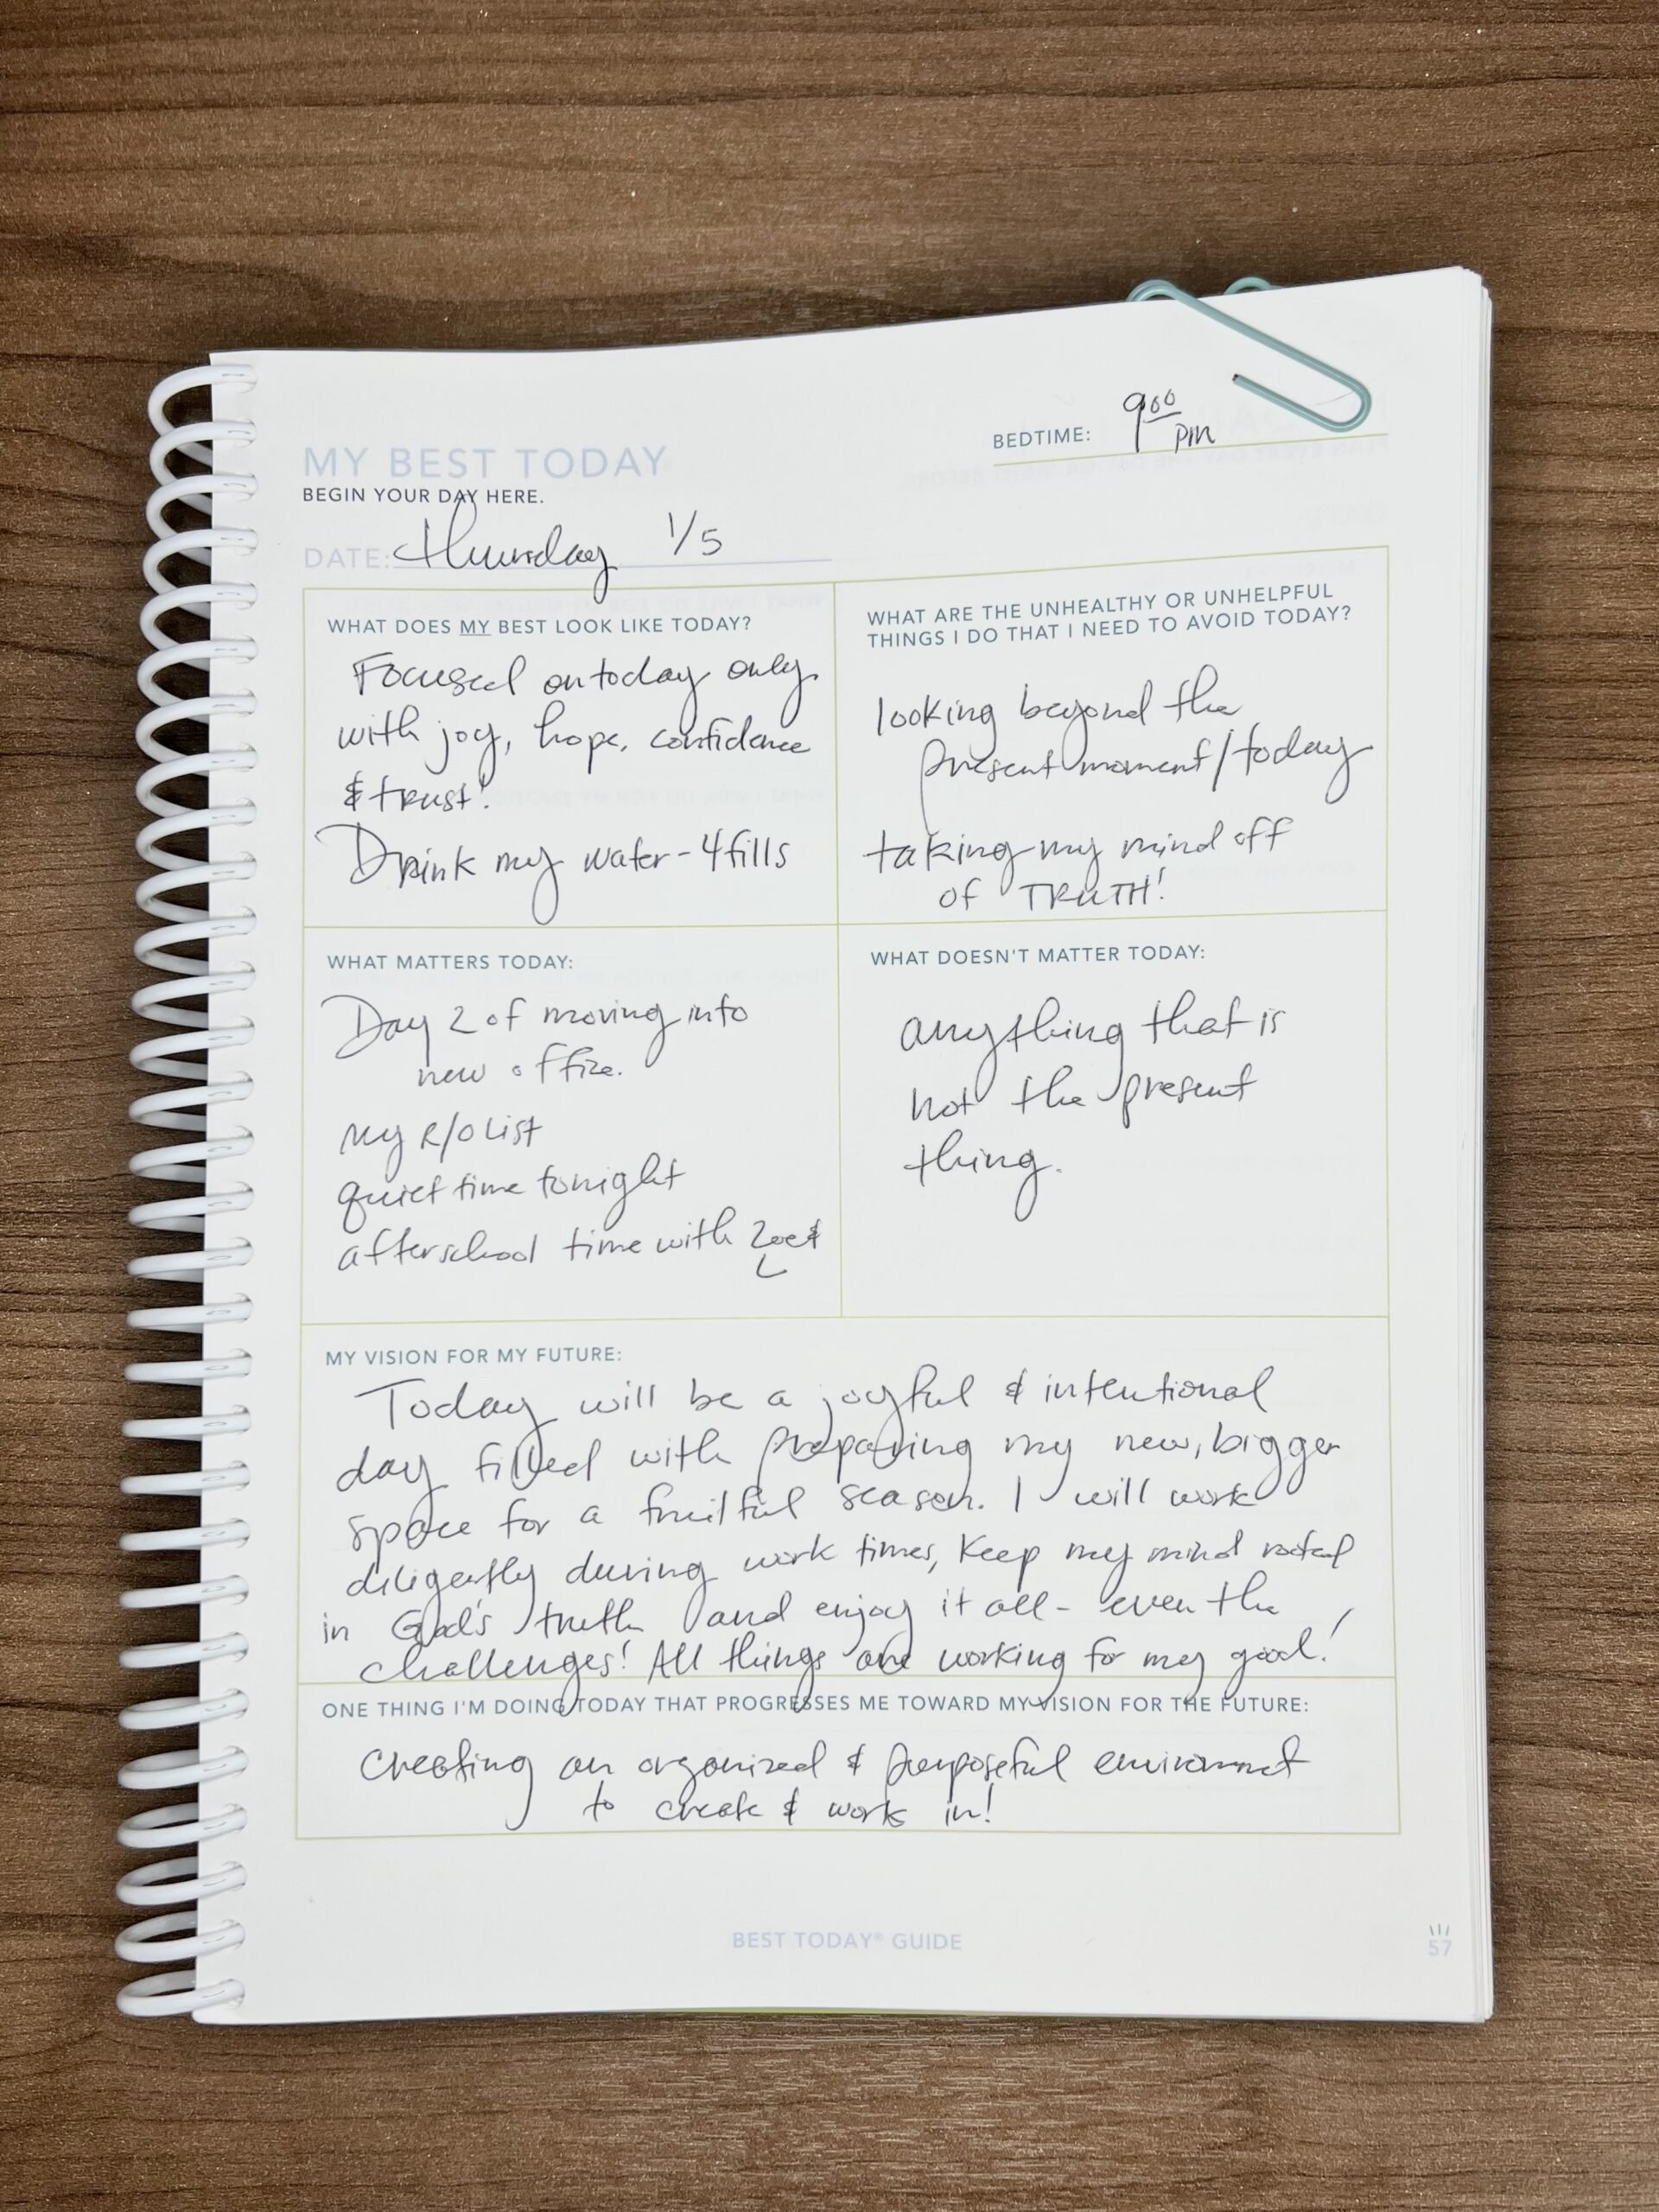 MY BEST TODAY
BEGIN YOUR DAY HERE.
BEDTIME: 9:00 PM
DATE: Thursday 1/5
WHAT DOES MY BEST LOOK LIKE TODAY?
Focused on today only
with joy, hope, confidence
& trust!
Drink my water - 4 fills
WHAT ARE THE UNHEALTHY OR UNHELPFUL
THINGS I DO THAT I NEED TO AVOID TODAY?
looking beyond the
present moment/today
taking my mind off
of TRUTH!
WHAT MATTERS TODAY:
Day 2 of moving into
new office.
my R/O List
quiet time tonight
afterschool time with Zoe &
L
WHAT DOESN'T MATTER TODAY:
anything that is
not the present
thing.
MY VISION FOR MY FUTURE:
Today will be a joyful & intentional
day filled with preparing my new, bigger
space for a fruitful season. I will work
diligently during work times, keep my mind rooted
in God's truth and enjoy it all - even the
challenges! All things are working for my good!
ONE THING I'M DOING TODAY THAT PROGRESSES ME TOWARD MY VISION FOR THE FUTURE:
creating an organized & purposeful environment
to create & work in!
BEST TODAY® GUIDE
57